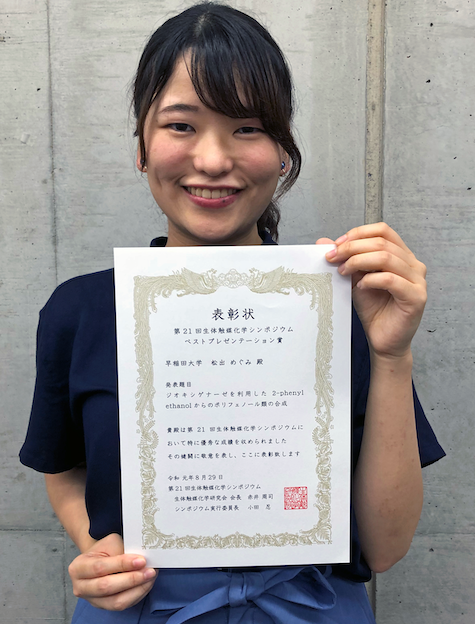 表彰状
第21回生体触媒化学シンポジウム
ベストプレゼンテーション賞
早稲田大学 松出 めぐみ 殿
発表題目
ジオキシゲナーゼを利用した 2-phenyl
ethanolからのポリフェノール類の合成
貴殿は第 21 回生体触媒化学シンポジウムに
おいて特に優秀な成績を収められました
その健闘に敬意を表し、ここに表彰致します
令和 元年 8 月 29 日
第21回生体触媒化学シンポジウム
生体触媒化学研究会 会長 赤井 周司
シンポジウム実行委員長 小田 忍